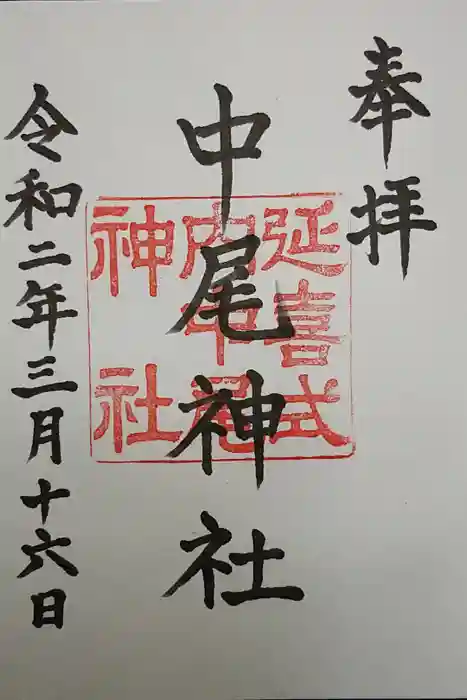 奉拝
中尾神社
延喜式
内中尾
神社
令和二年三月十六日